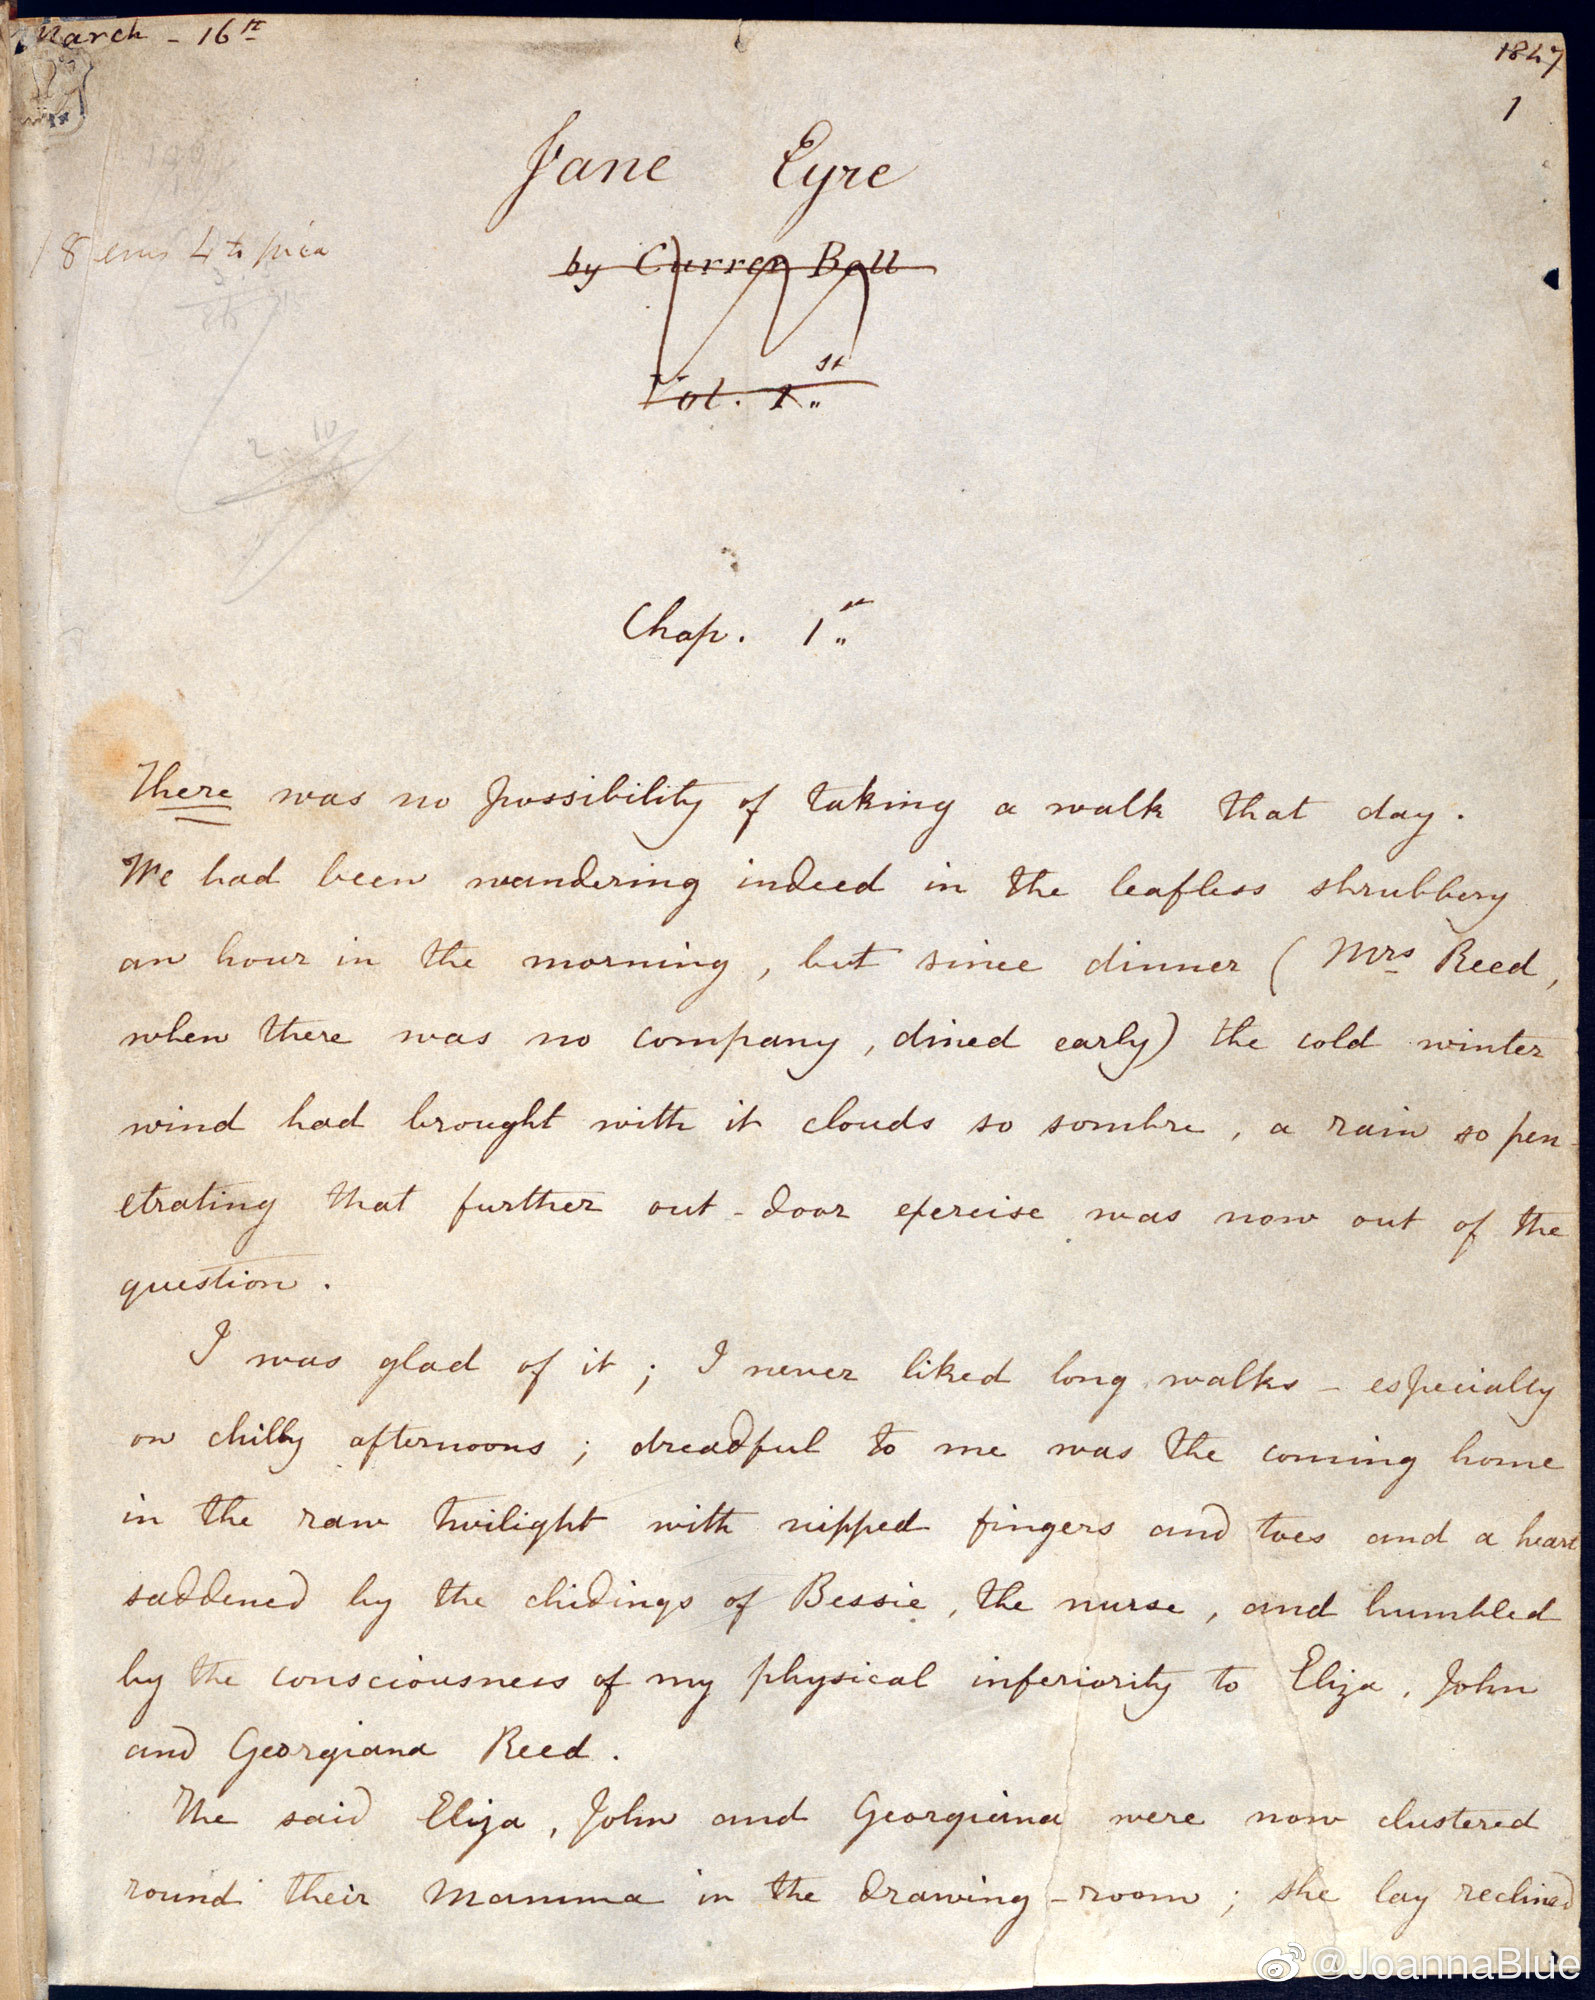 March - 16th
1847
1
Jane Eyre
18 ems 4to pica
by Currer Bell
Vol. 1.st
2 10
Chap. 1.st
There was no possibility of taking a walk that day.
We had been wandering indeed in the leafless shrubbery
an hour in the morning, but since dinner (Mrs Reed,
when there was no company, dined early) the cold winter
wind had brought with it clouds so sombre, a rain so pen-
etrating that further out-door exercise was now out of the
question.
I was glad of it; I never liked long walks - especially
on chilly afternoons; dreadful to me was the coming home
in the raw twilight with nipped fingers and toes and a heart
saddened by the chidings of Bessie, the nurse, and humbled
by the consciousness of my physical inferiority to Eliza, John
and Georgiana Reed.
The said Eliza, John and Georgiana were now clustered
round their Mamma in the drawing-room; she lay reclined
@JoannaBlue